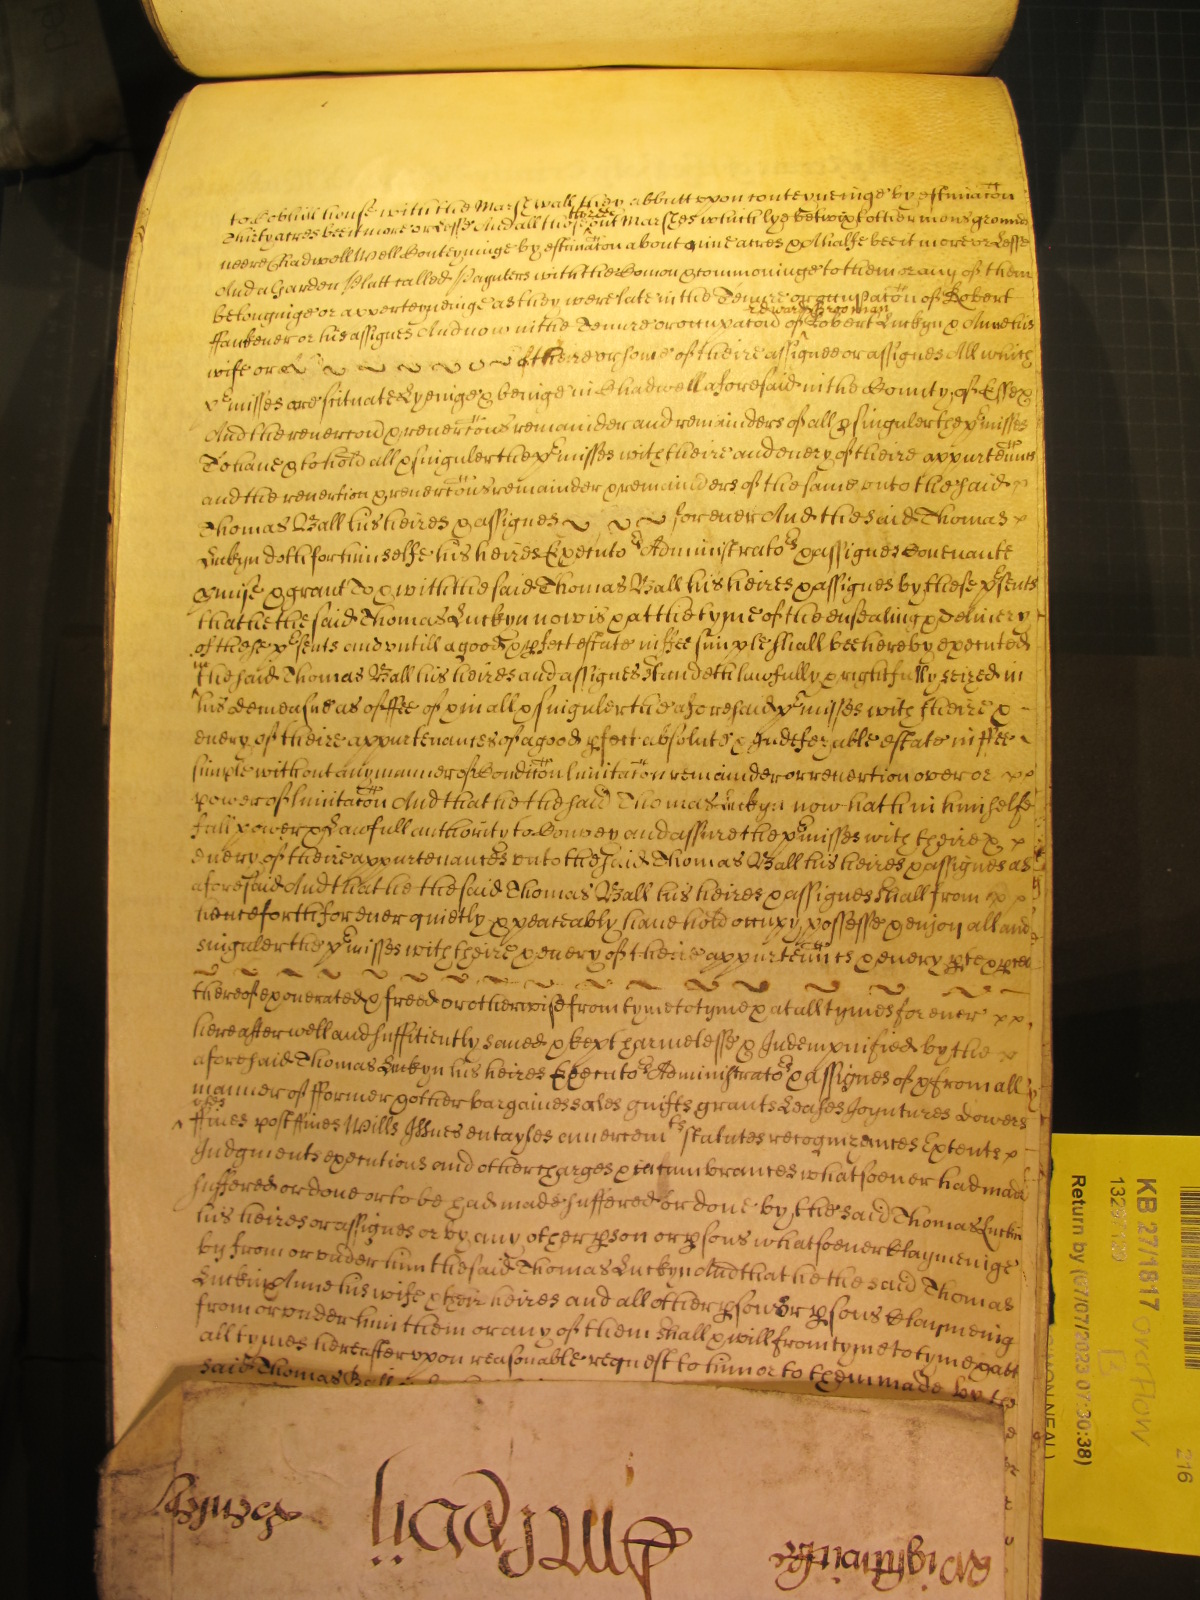 house with the Marsh wall they abbutt upon conteyneinge by estimacon
Thirty acres bee it more or lesse And all those three out Marshes which lye betwixt other mens grounds
neere Chadwell Well Conteyninge by estimacon about nine acres & A halfe bee it more or Lesse
And a Garden Platt called Paynters with the Comon & commoninge to them or any of them
belonginge or apperteyneinge as they were late in the Tenure or occupacon of Robert
edward
ffankener or his assignes And now in the Tenure or occupacon of Robert Luckyn & Anne his
wife or of theire or some of theire assignee or assignes All which
pmisses are scituate Lyeinge & beinge in Chadwell aforesaid in the County of Essex
And the revercon & revercons remainder and remainders of all & singuler the pmisses
To have & to hold all & singuler the pmisses with theire and every of theire appurtennts
and the revertion & revercons remainder & remainders of the same unto the said
Thomas Ball his heires & assignes for ever And the said Thomas
Luckyn doth for himselfe his heires Executors Administrators & assignes Covenante
pmise & grant To & with the said Thomas Ball his heires & assignes by these psents
that he the said Thomas Luckyn now is & att the tyme of the ensealing & delivery
of these psents and untill a good & pfect estate in ffee simple shall bee hereby executed
in
the said Thomas Ball his heires and assignes standeth lawfully & rightfully seized in
his demeasne as of ffee of & in all & singuler the aforesaid pmisses with theire &
every of theire appurtenances of a good pfect absolute & Indefezable estate in ffee
simple without any manner of Condicon limitacon remainder or revertion over or
power of limitacon And that he the said Thomas Luckyn now hath in himselfe
full power & Lawfull authority to Convey and assure the pmisses with theire &
every of theire appurtenances unto the said Thomas Ball his heires & assignes as
aforesaid And that he the said Thomas Ball his heires & assignes shall from
henceforth for ever quietly & peaceably have hold occupy possesse & enjoy all and
singuler the pmisses with theire & every of theire appurtennts & every pte & pcell
thereof exonerated & freed or otherwise from tyme to tyme & at all tymes for ever
hereafter well and sufficiently saved & kept harmelesse & Indempnified by the
aforesaid Thomas Luckyn his heires Executors Administrators & assignes of & from all
manner of fformer & other bargaines sales guifts grants Leases Joyntures Dowers
uses
ffines post ffines Wills Issues entayles amercemts statutes recognizances Extents
Judgments executions and other charges & incumbrances whatsoever had made
suffered or done or to be had made suffered or done by the said Thomas Luckin
his heires or assignes or by any other pson or psons whatsoever Claymeinge
by from or under him the said Thomas Luckyn And that he the said Thomas
Luckin & Anne his wife & their heires and all other pson or psons Claymeing
from or under him them or any of them shall & will from tyme to tyme & att
all tymes hereafter upon reasonable request to him or to them made by the
said Thomas Ball
KB 27/1817 overflow
B
Return by (07/07/2023 07:30:38)
216